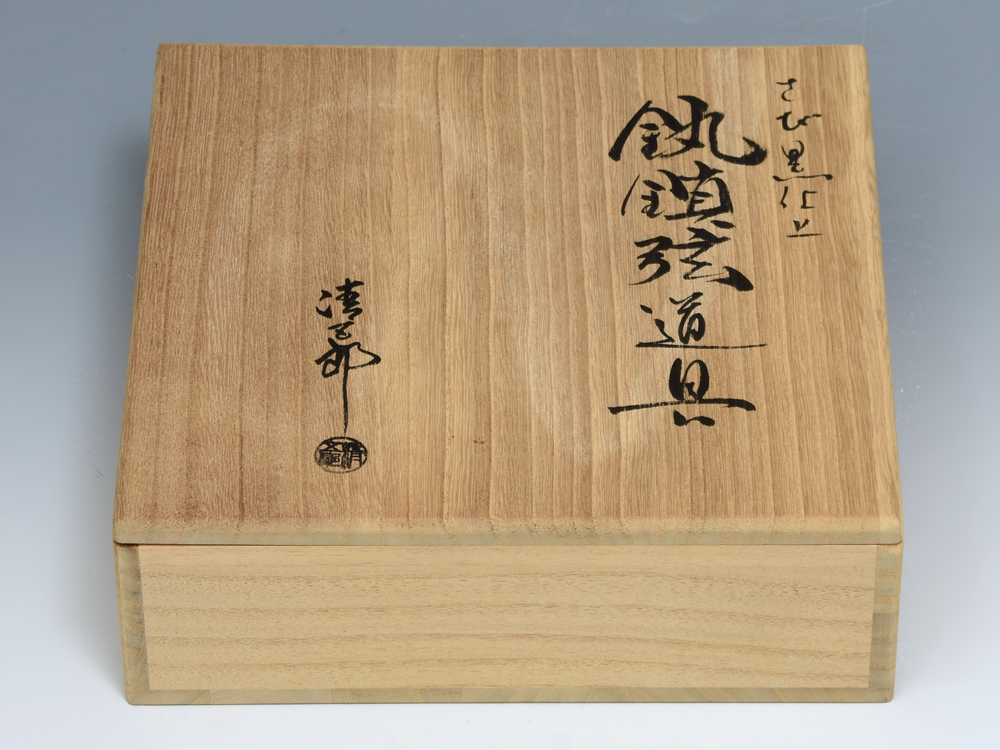 さび黒仕上
釻鎖弦道具
清五郎